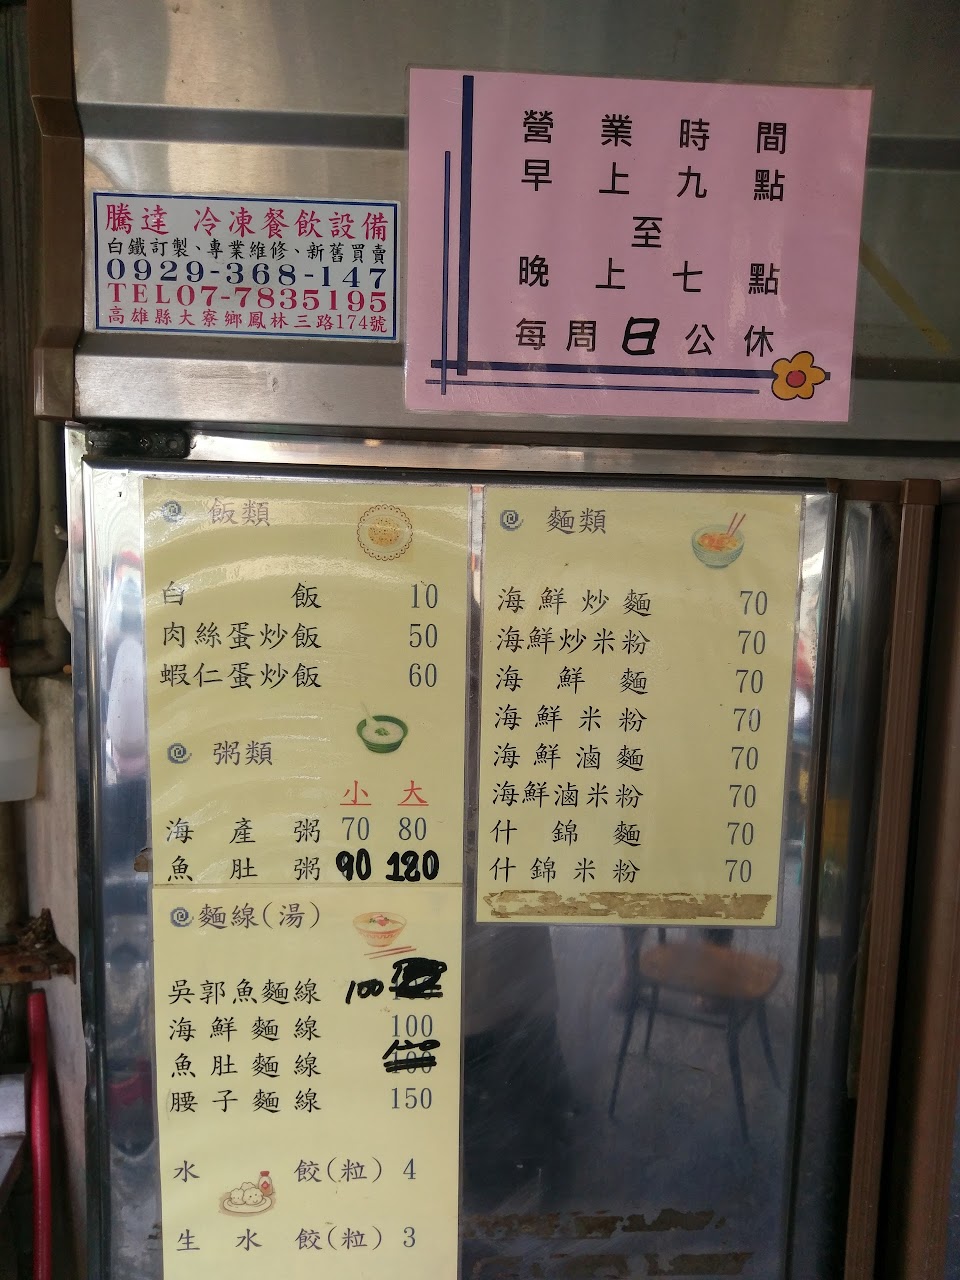 營業時間
早上九點
至
晚上七點
每周日公休
騰達 冷凍餐飲設備
白鐵訂製、專業維修、新舊買賣
0929-368-147
TEL07-7835195
高雄縣大寮鄉鳳林三路174號
飯類
白飯 10
肉絲蛋炒飯 50
蝦仁蛋炒飯 60
粥類
小 大
海產粥 70 80
魚肚粥 90 120
麵線(湯)
吳郭魚麵線 100
海鮮麵線 100
魚肚麵線
腰子麵線 150
水餃(粒) 4
生水餃(粒) 3
麵類
海鮮炒麵 70
海鮮炒米粉 70
海鮮麵 70
海鮮米粉 70
海鮮滷麵 70
海鮮滷米粉 70
什錦麵 70
什錦米粉 70